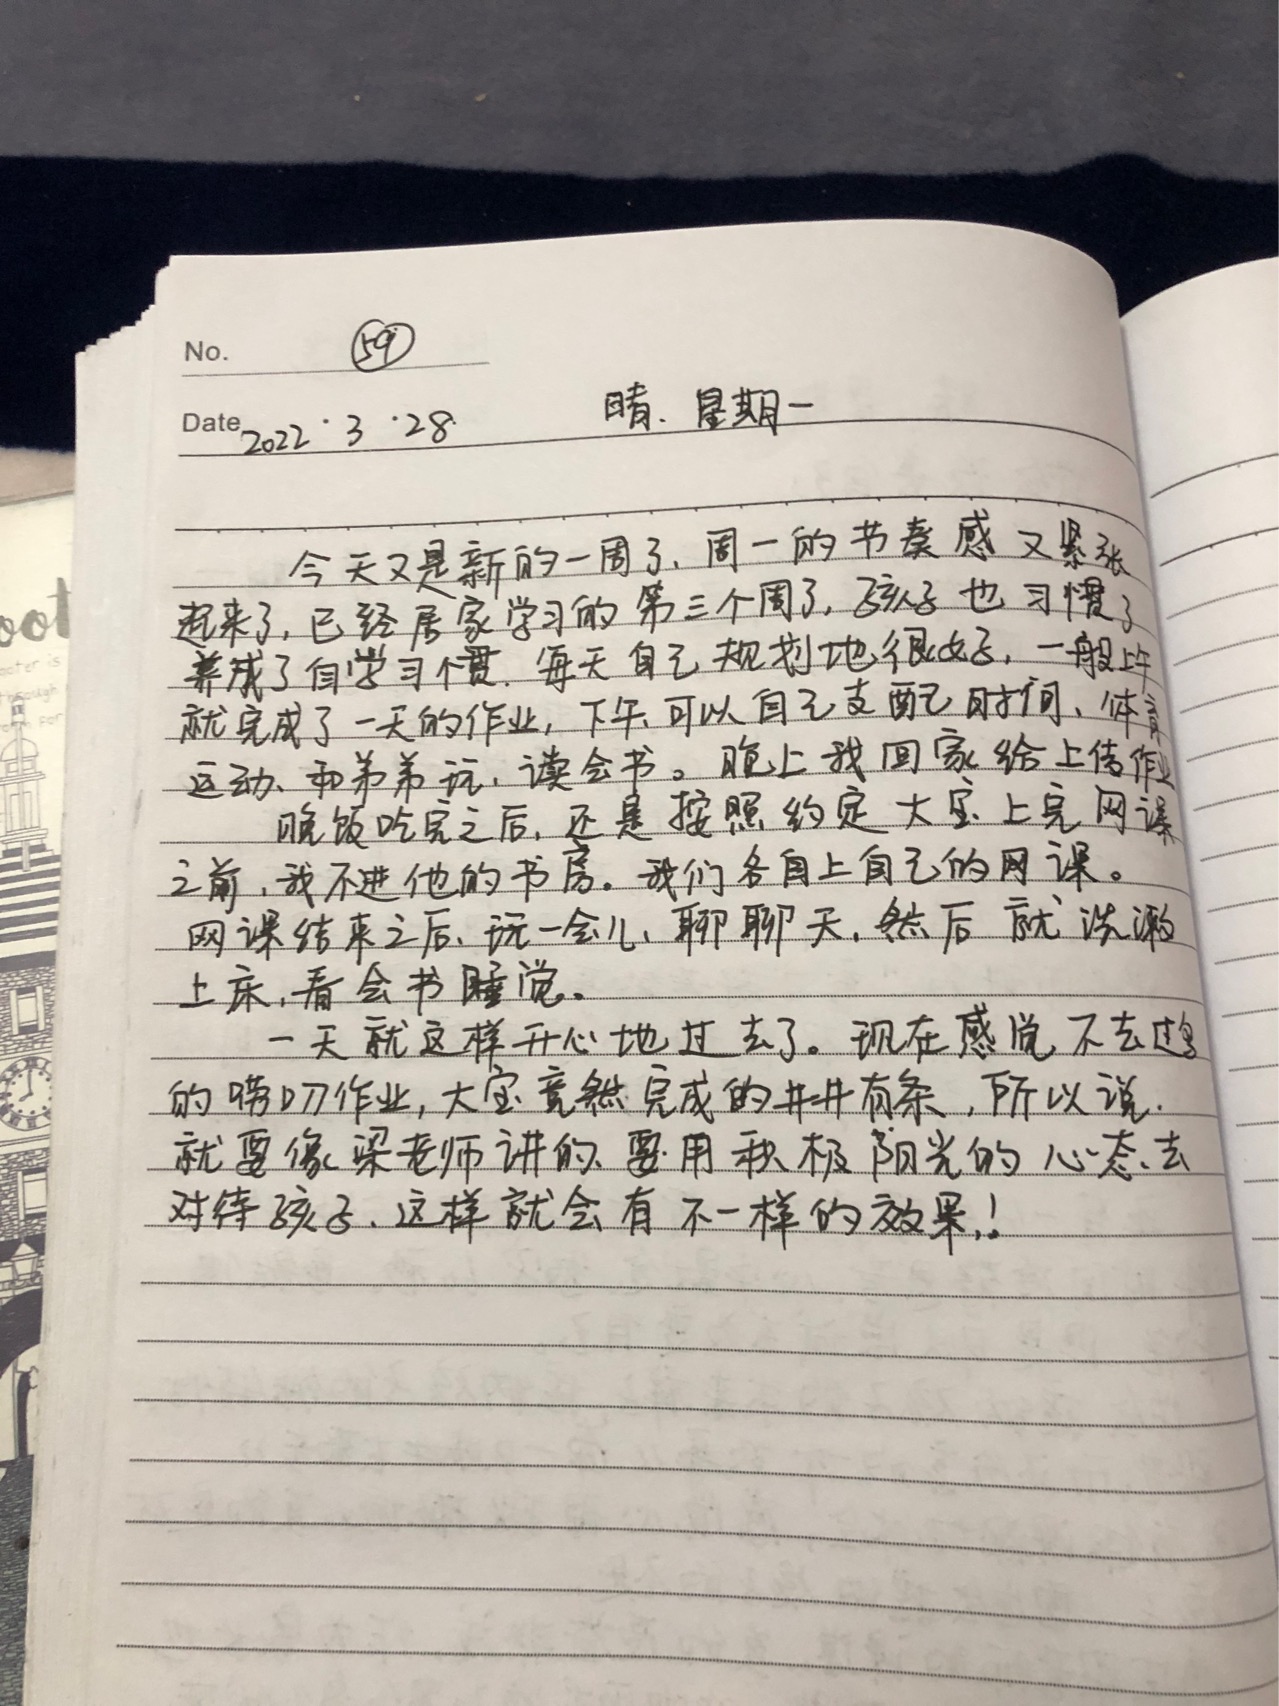 No. 59
Date 2022·3·28 晴、星期一
今天又是新的一周了,周一的节奏感又紧张
起来了,已经居家学习的第三个周了,孩子也习惯了
养成了自学习惯,每天自己规划地很好,一般上午
就完成了一天的作业,下午、可以自己支配时间、体育
运动、和弟弟玩、读会书。晚上我回家给上传作业
晚饭吃完之后,还是按照约定大宝上完网课
之前,我不进他的书房。我们各自上自己的网课。
网课结束之后、玩一会儿、聊聊天,然后就洗漱
上床,看会书睡觉。
一天就这样开心地过去了。现在感觉不去过多
的唠叨作业,大宝竟然完成的井井有条,所以说,
就要像梁老师讲的、要用积极阳光的心态、去
对待孩子、这样就会有不一样的效果!
oot
ooter is
through
for